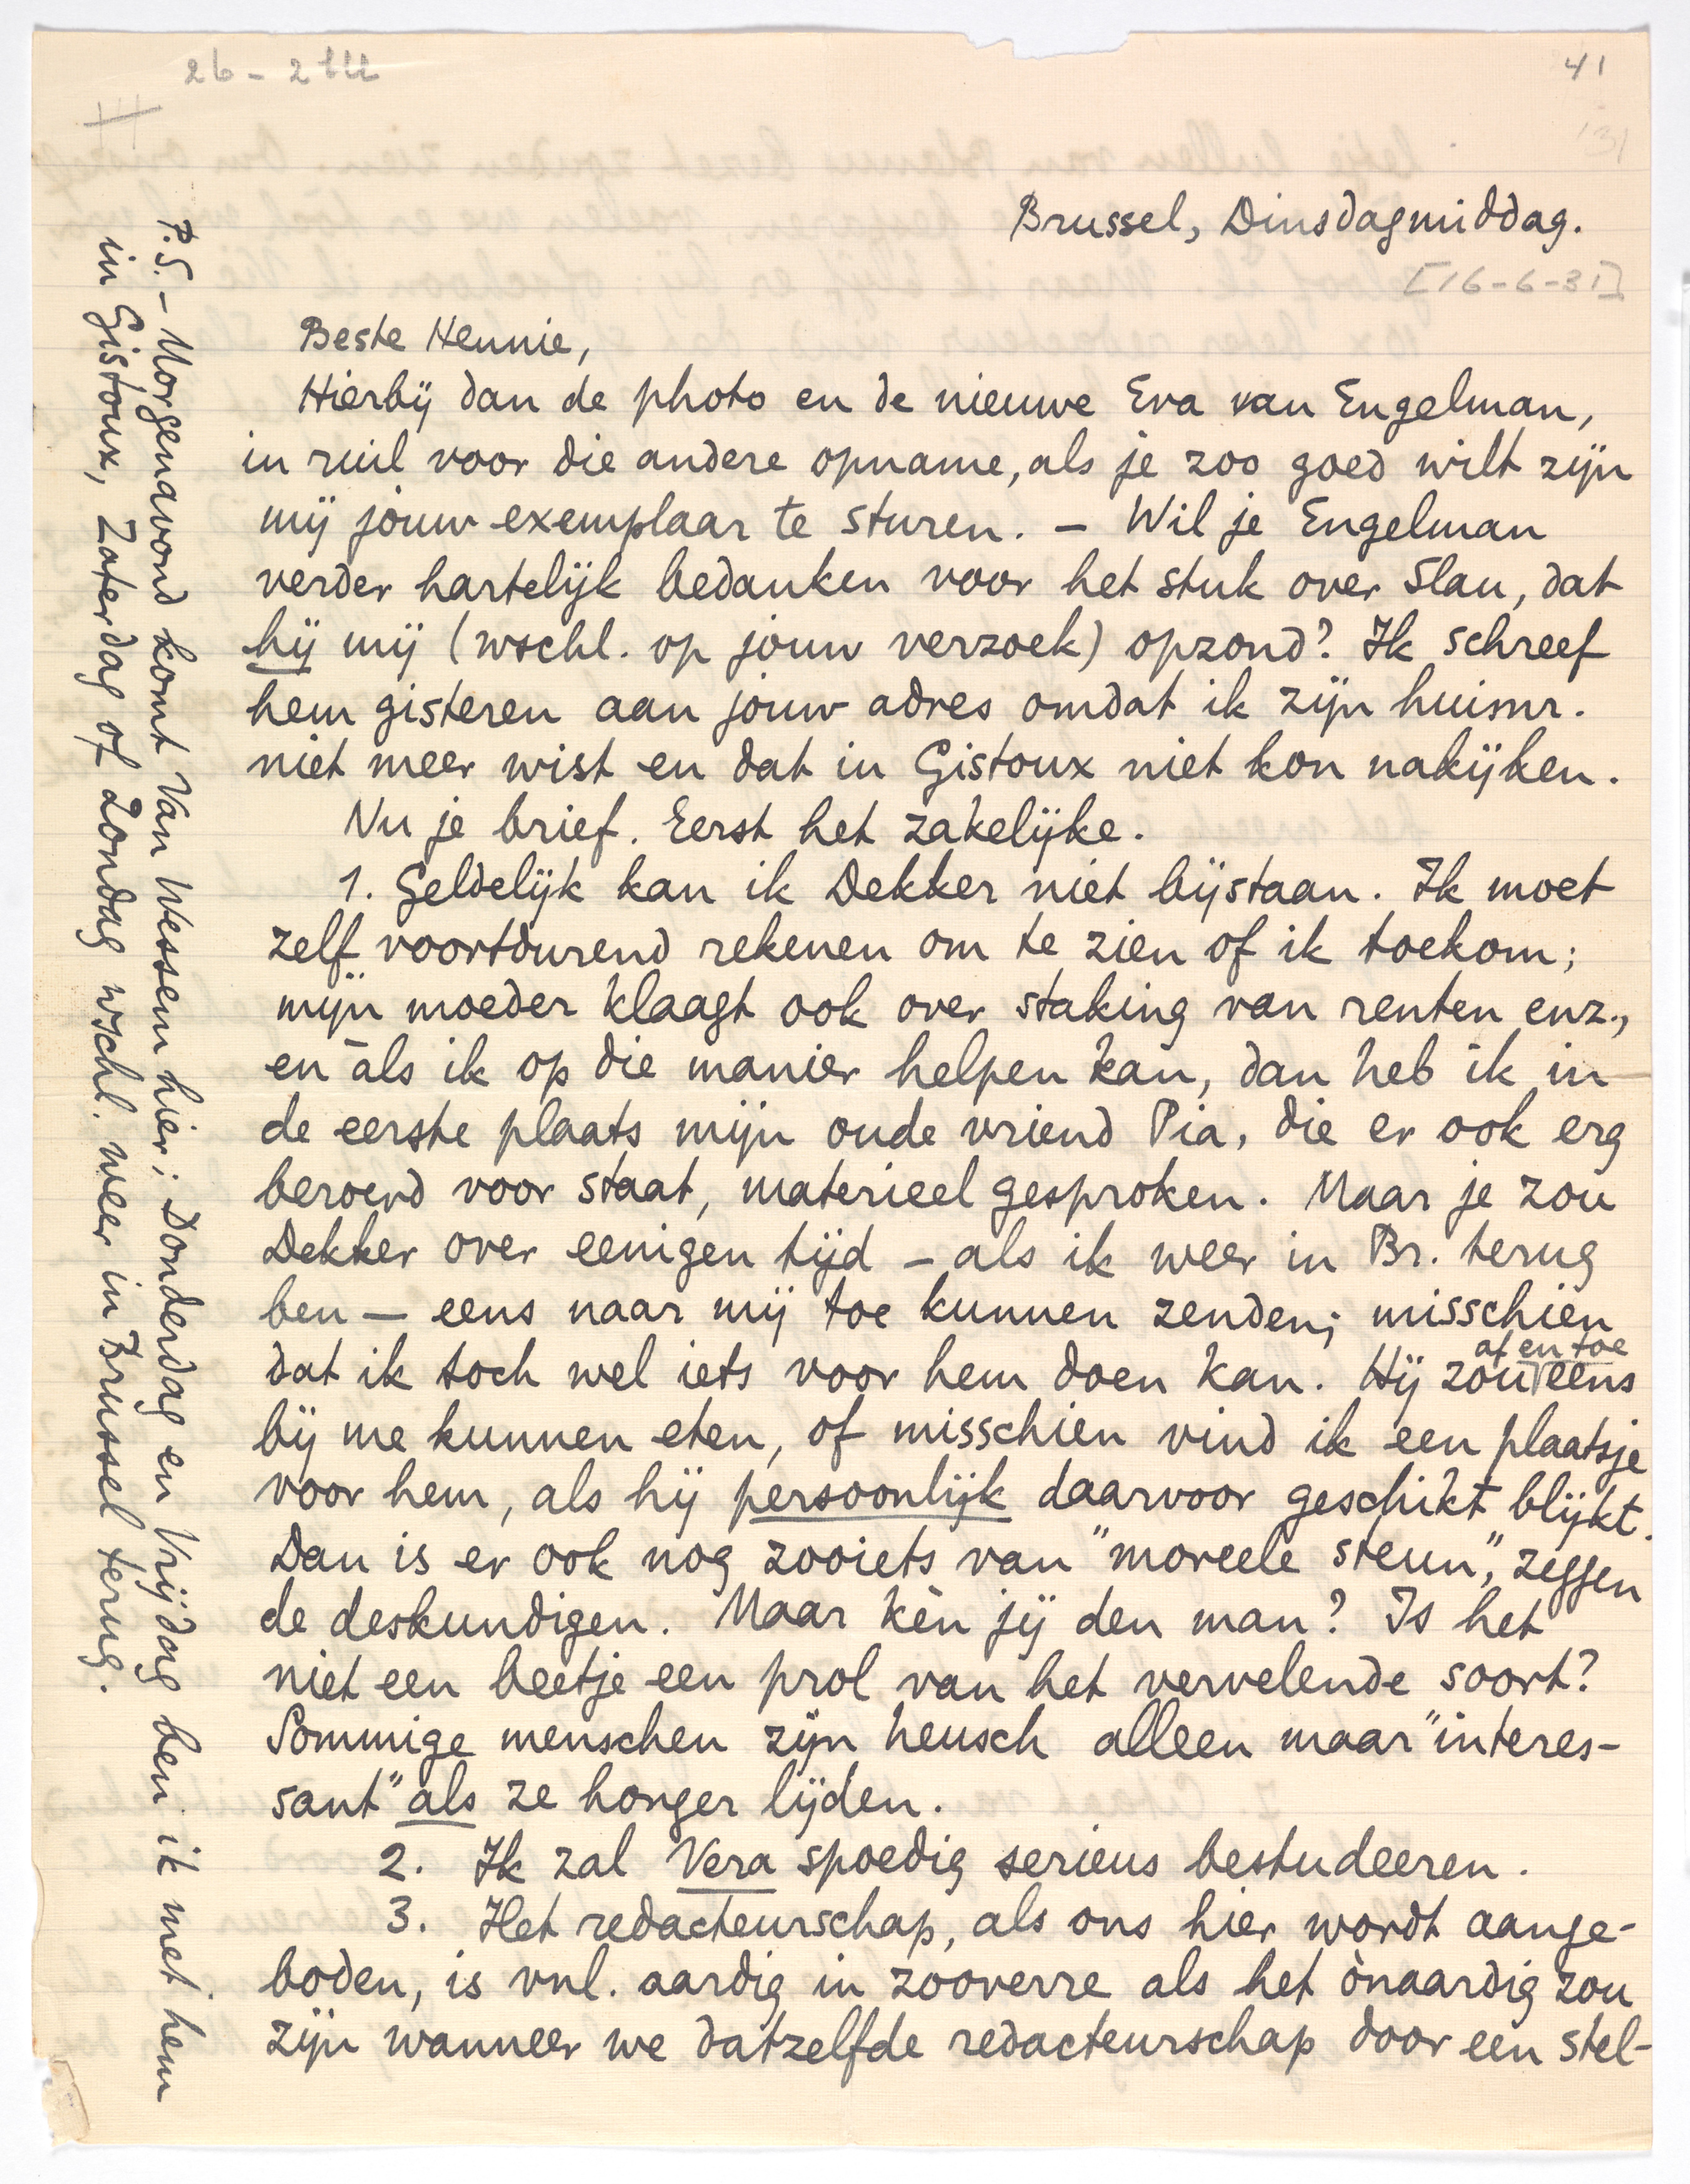 41
Brussel, Dinsdagmiddag.
[16-6-31]
Beste Hennie,
Hierbij dan de photo en de nieuwe Eva van Engelman,
in ruil voor die andere opname, als je zoo goed wilt zijn
mij jouw exemplaar te sturen. – Wil je Engelman
verder hartelijk bedanken voor het stuk over Slau, dat
hij mij (wschl. op jouw verzoek) opzond? Ik schreef
hem gisteren aan jouw adres omdat ik zijn huisnr.
niet meer wist en dat in Gistoux niet kon nakijken.
Nu je brief. Eerst het zakelijke.
1. Geldelijk kan ik Dekker niet bijstaan. Ik moet
zelf voortdurend rekenen om te zien of ik toekom;
mijn moeder klaagt ook over staking van renten enz.,
en àls ik op die manier helpen kan, dan heb ik in
de eerste plaats mijn oude vriend Pia, die er ook erg
beroerd voor staat, materieel gesproken. Maar je zou
Dekker over eenigen tijd – als ik weer in Br. terug
ben – eens naar mij toe kunnen zenden; misschien
dat ik toch wel iets voor hem doen kan. Hij zou af en toe eens
bij me kunnen eten, of misschien vind ik een plaatsje
voor hem, als hij persoonlijk daarvoor geschikt blijkt.
Dan is er ook nog zooiets van "moreele steun", zeggen
de deskundigen. Maar kèn jij den man? Is het
niet een beetje een prol van het vervelende soort?
Sommige menschen zijn heusch alleen maar "interes-
sant" als ze honger lijden.
2. Ik zal Vera spoedig serieus bestudeeren.
3. Het redacteurschap, als ons hier wordt aange-
boden, is vnl. aardig in zooverre als het ònaardig zou
zijn wanneer we datzelfde redacteurschap door een stel-
P.S. – Morgenavond komt Van Wessem hier; Donderdag en Vrijdag ben ik met hem
in Gistoux, Zaterdag of Zondag wschl. weer in Brussel terug.